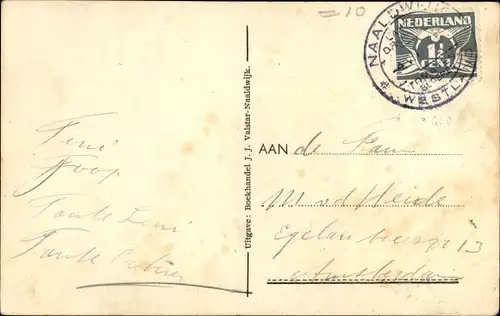 =10
NAALDWIJK
WESTLAND
NEDERLAND
1½
Teni
Joop
Tante Leni
Tante
Uitgave: Boekhandel J. J. Valstar-Naaldwijk.
AAN de Fam
M v d Heide
Egelantiersgr 13
Amsterdam